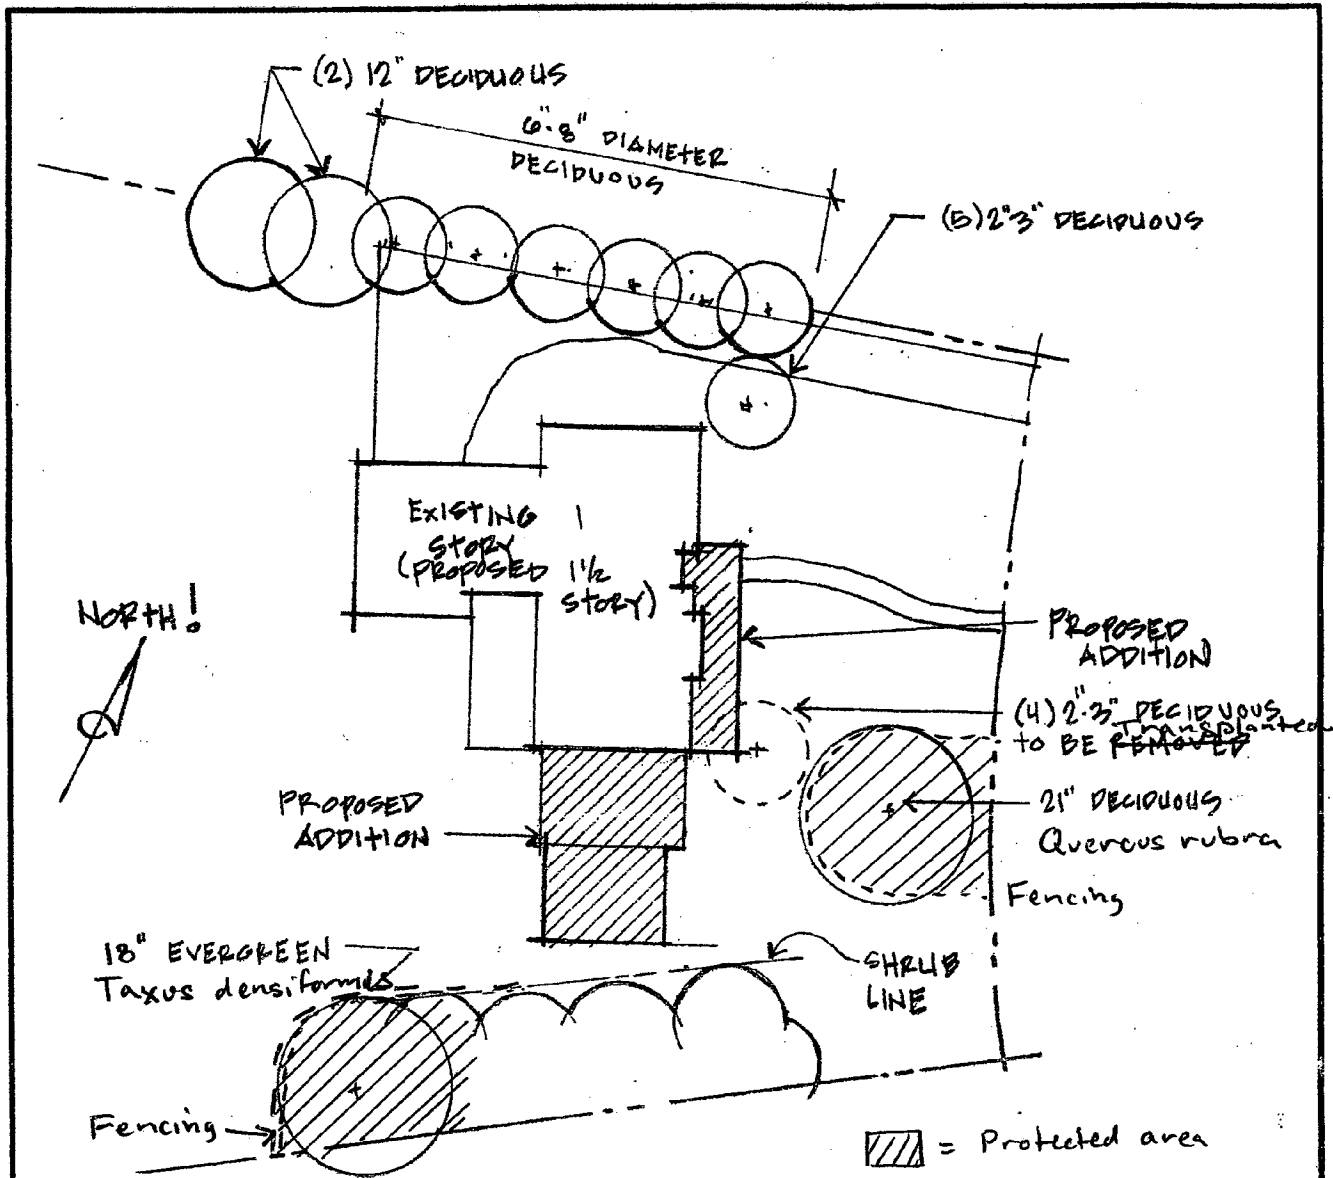 (2) 12" DECIDUOUS
6"-8" DIAMETER
DECIDUOUS
(5) 2"3" DECIDUOUS
EXISTING 1
STORY
(PROPOSED 1 1/2
STORY)
NORTH!
PROPOSED
ADDITION
(4) 2"-3" DECIDUOUS
Transplanted
TO BE REMOVED
21" DECIDUOUS
Quercus rubra
Fencing
PROPOSED
ADDITION
18" EVERGREEN
Taxus densiformis
SHRUB
LINE
Fencing
= Protected area